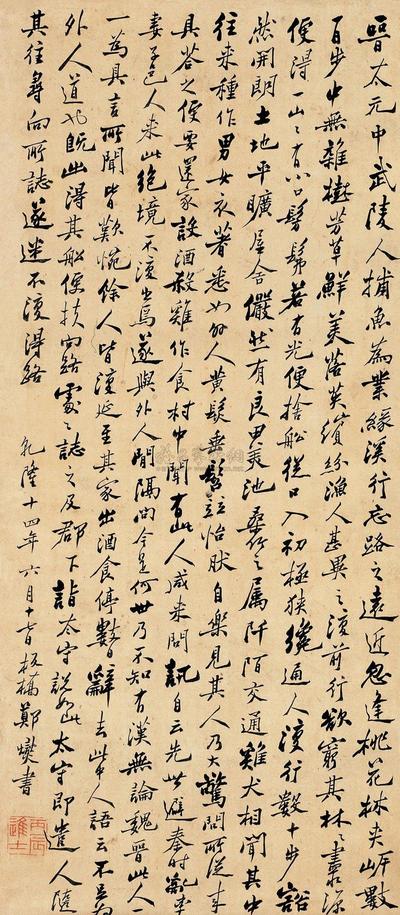 晉太元中武陵人捕魚為業緣溪行忘路之遠近忽逢桃花林夾岸數
百步中無雜樹芳草鮮美落英繽紛漁人甚異之復前行欲窮其林〻盡源
便得一山〻有小口髣髴若有光便捨船從口入初極狹纔通人復行數十步豁
然開朗土地平曠屋舍儼然有良田美池桑竹之屬阡陌交通雞犬相聞其中
往來種作男女衣著悉如外人黃髮垂髫並怡然自樂見其人乃大驚問所從來
具答之便要還家設酒殺雞作食村中聞有此人咸來問訊自云先世避秦時亂率
妻子邑人來此絕境不復出焉遂與外人間隔問今是何世乃不知有漢無論魏晉此人一
一為具言所聞皆歎惋餘人皆復延至其家出酒食停數日辭去此中人語云不足為
外人道也既出得其船便扶向路處〻誌之及郡下詣太守說如此太守即遣人隨
其往尋向所誌遂迷不復得路
乾隆十四年六月十日板橋鄭燮書
丙辰進士